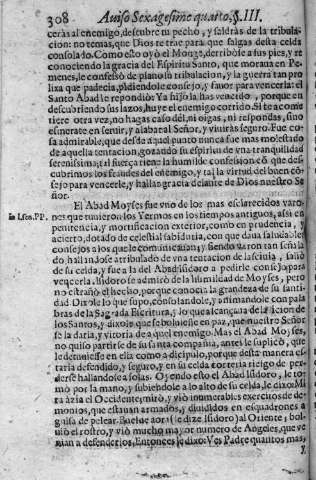 308 Auiso Sexagesimo quarto, §. III.
ceràs al enemigo, descubre tu pecho, y saldràs de la tribula-
cion: no temas, que Dios te trae para que salgas desta celda
consolado. Como esto oyò el Monge, derribòse a sus pies, y re
conociendo la gracia del Espiritu Santo, que moraua en Pe-
menes, le confessò de plano su tribulacion, y la guerra tan pro
lixa que padecia, pidiendole consejo, y fauor para vencerla: el
Santo Abad le respondiò: Ya hijo la has vencido, porque en
descubriendo sus lazos, huye el enemigo corrido. Si te acome
tiere otra vez, no hagas caso dèl, ni oigas, ni respondas, sino
esmerate en seruir, y alabar al Señor, y viuiràs seguro. Fue co-
sa admirable, que desde aquel punto nunca fue mas molestado
de aquella tentacion, gozando su espiritu de vna tranquilidad
serenissima; tal fuerça tiene la humilde confession cõ que des-
cubrimos los fraudes del enemigo, y tal la virtud del buen cõ-
sejo para vencerle, y hallar gracia delante de Dios nuestro Se-
ñor.
El Abad Moyses fue vno de los mas esclarecidos varo-
nes que tuuieron los Yermos en los tiempos antiguos, assi en
penitencia, y mortificacion exterior, como en prudencia, y
acierto, dotado de celestial sabiduria, con que daua saludables
consejos a los que le comunicauan; y siendo varon tan señala
do, hallandose atribulado de vna tentacion de lasciuia, saliò
de su celda, y fue a la del Abad Isidoro a pedirle consejo para
vencerla. Isidoro se admirò de la humildad de Moyses, pero
no estrañò el hecho, porque conocia la grandeza de su santi-
dad. Dixole lo que supo, consolandole, y animandole con pala
bras de la Sagrada Escritura, y lo que alcançaua de la licion de
los Santos, y dixole que se boluiesse en paz, que nuestro Señor
le daria vitoria de aquel enemigo. Mas el Abad Moyses,
no quiso partirse de su santa compañia, antes le suplicò, que
le detuuiesse en ella como a dicipulo, porque desta manera es-
taria defendido, y seguro, y en su celda correria riesgo de per-
derse hallandole a solas. Oyendo esto el Abad Isidoro, le to-
mò por la mano, y subiendole a lo alto de su celda, le dixo: Mi
ra àzia el Occidente; mirò, y viò inumerables exercitos de de-
monios, que estauan armados, y diuididos en esquadrones a
guisa de pelear. Buelue aora (le dize Isidoro) al Oriente; bol-
uiò el rostro, y viò mucho mayor numero de Angeles, que ve
nian a defenderlos. Entonces le dixo: Ves Padre quantos mas,